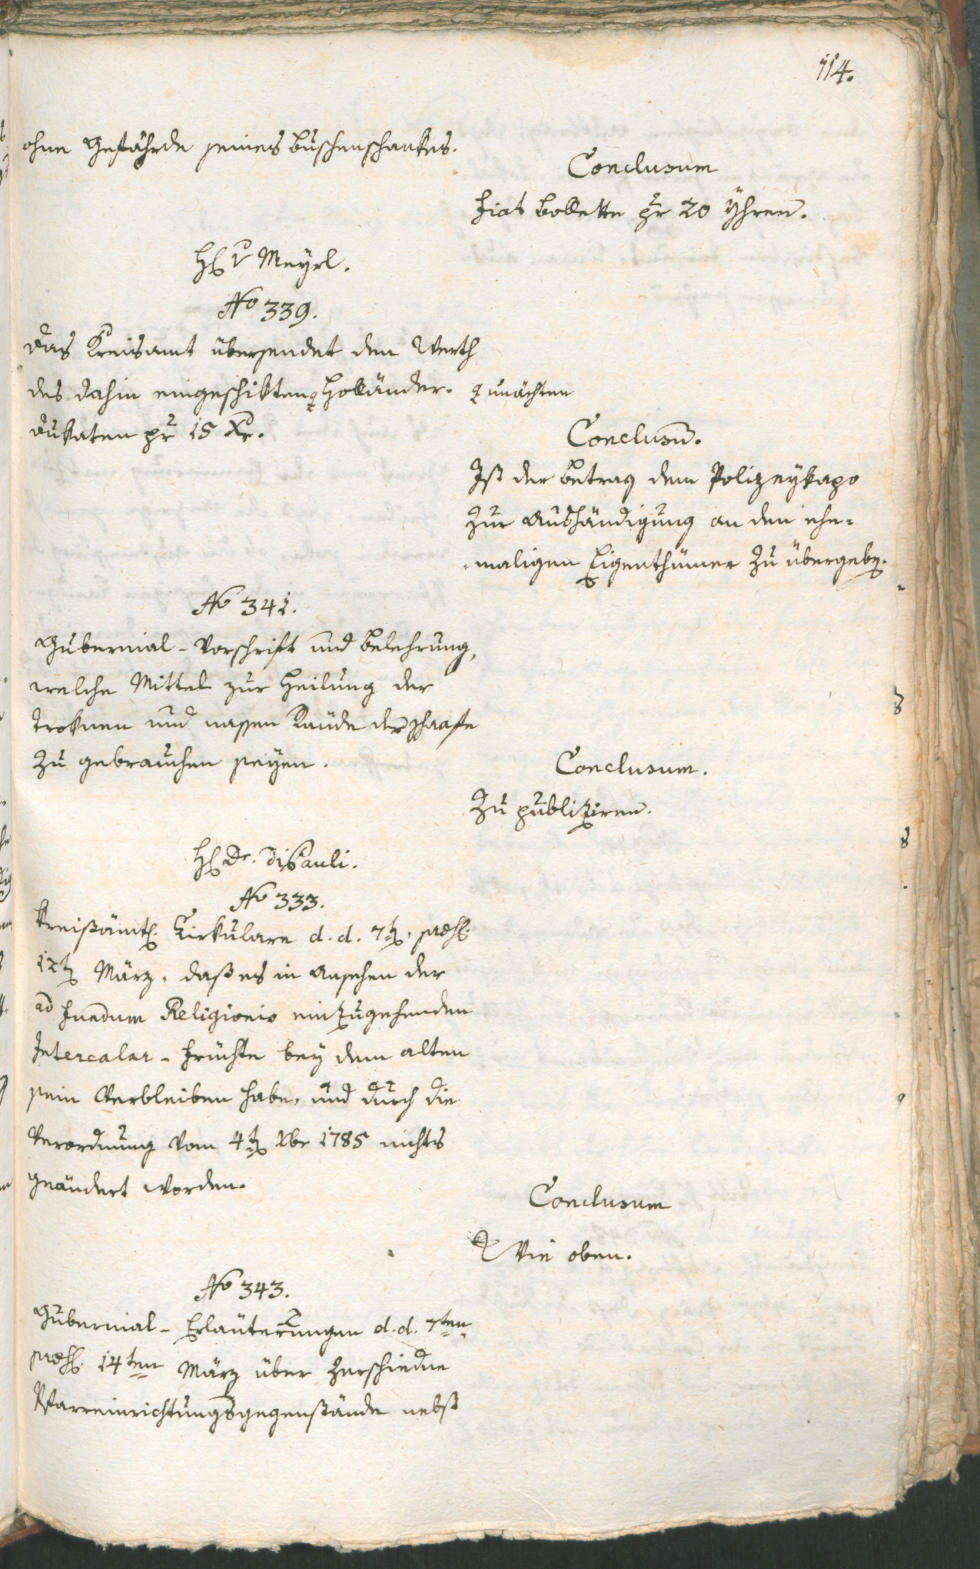 114.
ohne Gefährde seines Buschenschankes.
Conclusum
Fiat Bollette pr 20 Yhren.
H v Meyrl.
No 339.
Das Kreisamt übersendet den Werth
des dahin eingeschikten Holländer- unächten
Dukaten pr 15 Xr.
Conclusū.
Ist der Betrag dem Polizeykapo
zur Aushändigung an den ehe-
maligen Eigenthümer zu übergeben.
No 341.
Gubernial-Vorschrift und Belehrung,
welche Mittel zur Heilung der
troknen und nassen Raude der Schaafe
zu gebrauchen seyen.
Conclusum.
Zu publiziren.
H Dr. diPauli.
No 333.
Kreisämtl. Cirkulare d. d. 7ten, praes.
12ten März, daß es in Ansehen der
ad Fundum Religionis einzugehenden
Intercalar-Früchte bey dem alten
sein Verbleiben habe, und durch die
Verordnung vom 4ten Xbr 1785 nichts
geändert worden.
Conclusum
Wie oben.
No 343.
Gubernial-Erläuterungen d. d. 7ten
praes. 14ten März über Verschiedne
Pfarreinrichtungsgegenstände nebst